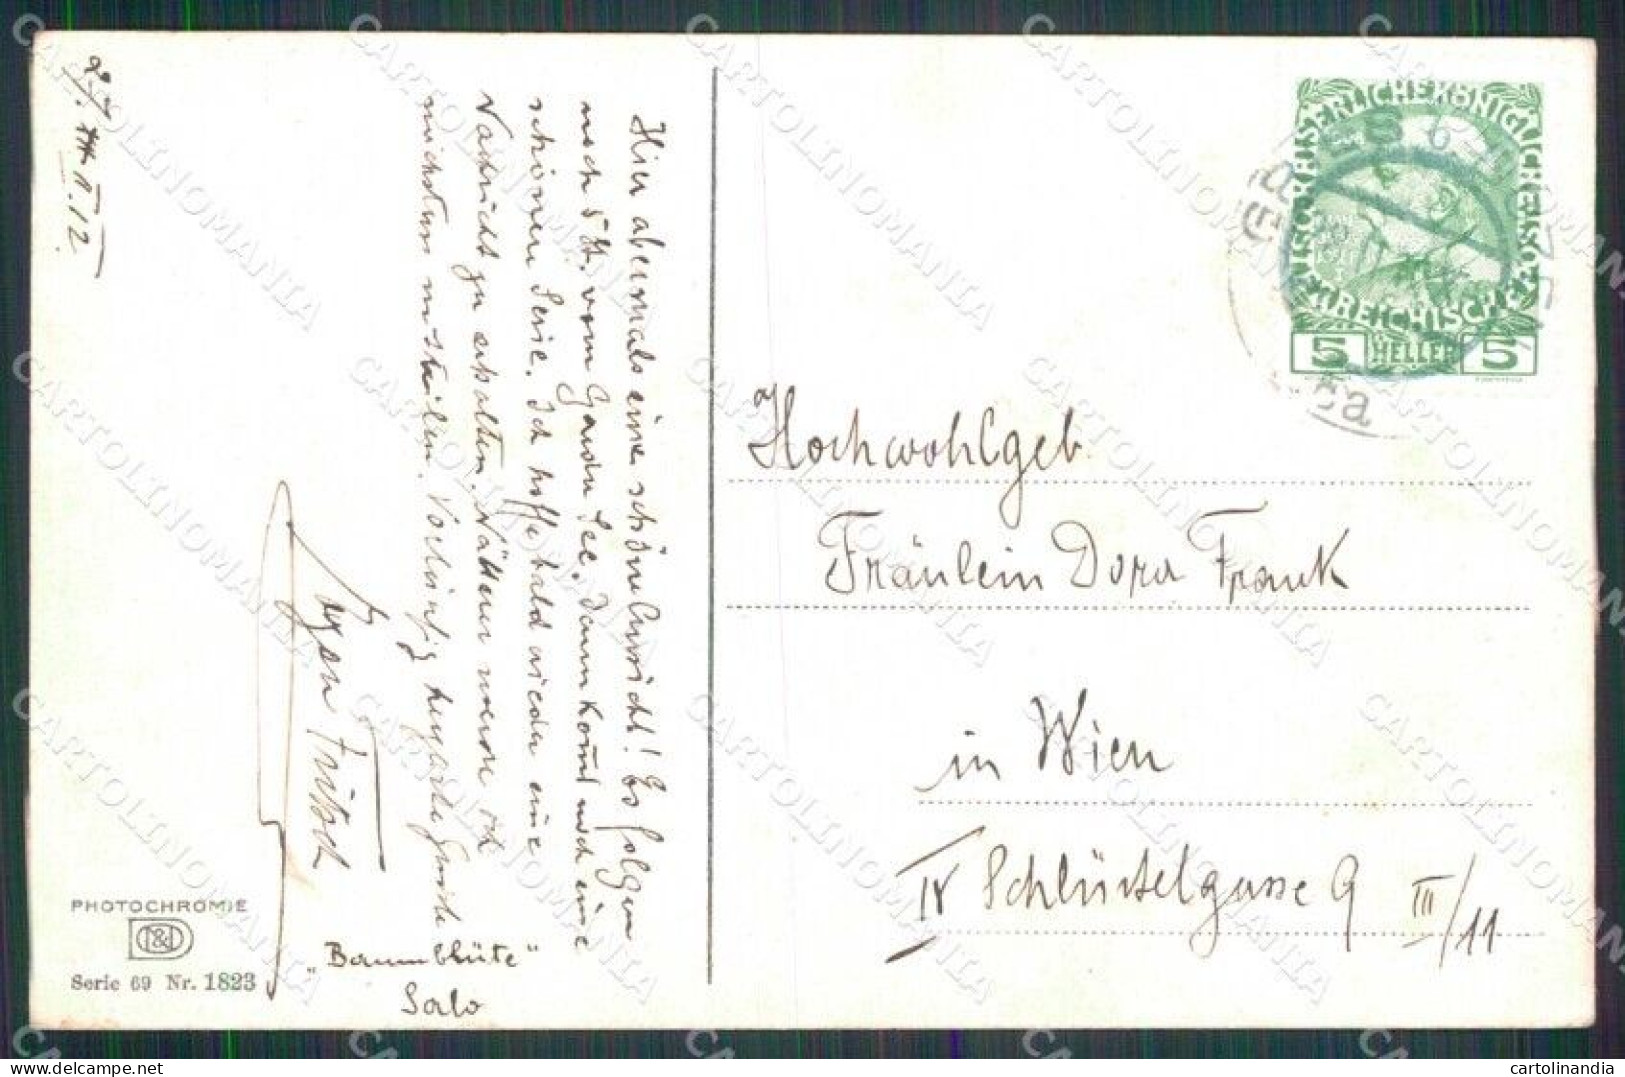 27. II. 12.
Hier abermals eine schöne Ansicht! Es folgen
noch 5 St. vom Garda See. Dann kommt noch eine
schönere Serie. Ich hoffe bald wieder eine
Nachricht zu erhalten. Näheres werde ich
nächstens mitteilen. Vorläufig herzliche Grüße
Egon Fritsch
"Baumblüte"
Salo
PHOTOCHROMIE
Serie 69 Nr. 1823
KAISERLICHE KÖNIGLICHE ÖSTERREICHISCHE POST
5 HELLER 5
Hochwohlgeb
Fräulein Dora Frank
in Wien
IV Schlüsselgasse 9 III/11
CARTOLINOMANIA
cartolinandia